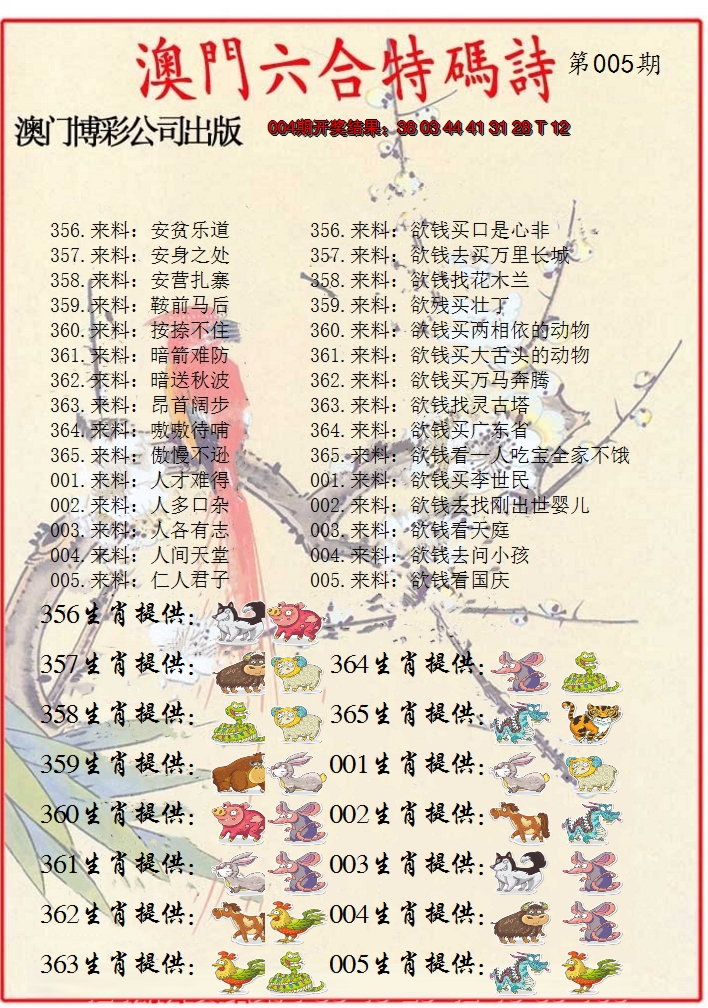 澳門六合特碼詩 第005期
澳门博彩公司出版 004期开奖结果：38 03 44 41 31 28 T 12
356.来料：安贫乐道 356.来料：欲钱买口是心非
357.来料：安身之处 357.来料：欲钱去买万里长城
358.来料：安营扎寨 358.来料：欲钱找花木兰
359.来料：鞍前马后 359.来料：欲残买壮丁
360.来料：按捺不住 360.来料：欲钱买两相依的动物
361.来料：暗箭难防 361.来料：欲钱买大舌头的动物
362.来料：暗送秋波 362.来料：欲钱买万马奔腾
363.来料：昂首阔步 363.来料：欲钱找灵古塔
364.来料：嗷嗷待哺 364.来料：欲钱买广东省
365.来料：傲慢不逊 365.来料：欲钱看一人吃宝全家不饿
001.来料：人才难得 001.来料：欲钱买李世民
002.来料：人多口杂 002.来料：欲钱去找刚出世婴儿
003.来料：人各有志 003.来料：欲钱看天庭
004.来料：人间天堂 004.来料：欲钱去问小孩
005.来料：仁人君子 005.来料：欲钱看国庆
356生肖提供：
357生肖提供： 364生肖提供：
358生肖提供： 365生肖提供：
359生肖提供： 001生肖提供：
360生肖提供： 002生肖提供：
361生肖提供： 003生肖提供：
362生肖提供： 004生肖提供：
363生肖提供： 005生肖提供：